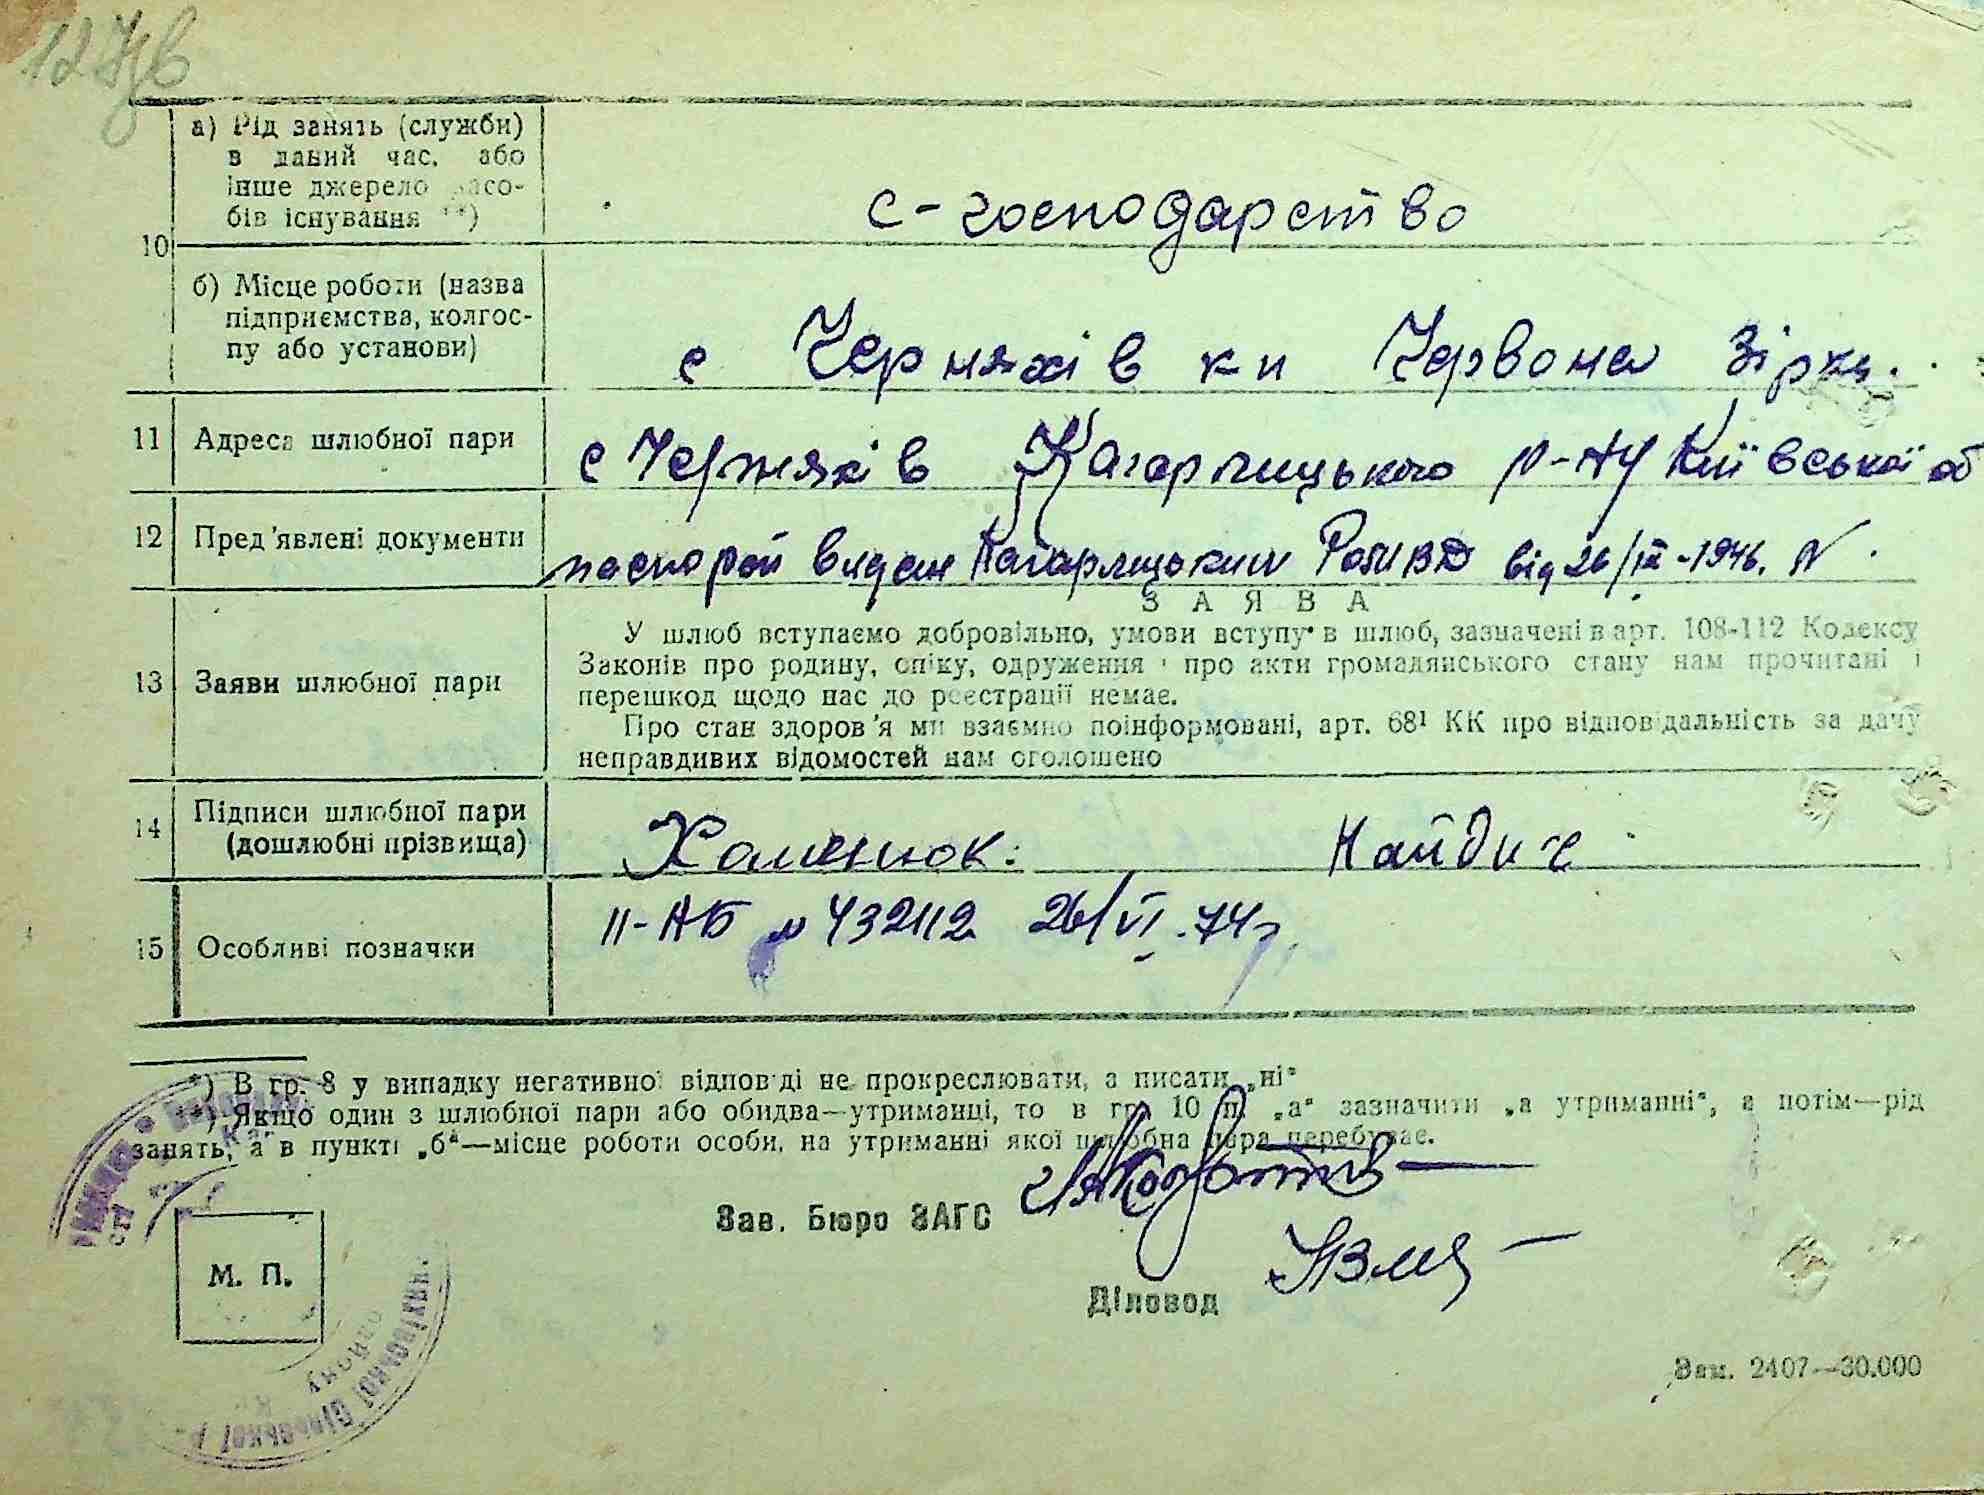 127зв
а) Рід занять (служби)
в даний час, або
інше джерело засо-
бів існування **)
с-господарство
10
б) Місце роботи (назва
підприємства, колгос-
пу або установи)
с Черняхів кп Червона Зірка.
11 Адреса шлюбної пари с Черняхів Кагарлицького р-ну Київської об
12 Пред'явлені документи паспорти видан Кагарлицьким від 26/ -1946. N
ЗАЯВА
У шлюб вступаємо добровільно, умови вступу в шлюб, зазначені в арт. 108-112 Кодексу
Законів про родину, опіку, одруження і про акти громадянського стану нам прочитані і
13 Заяви шлюбної пари
перешкод щодо нас до реєстрації немає.
Про стан здоров'я ми взаємно поінформовані, арт. 68¹ КК про відповідальність за дачу
неправдивих відомостей нам оголошено
14 Підписи шлюбної пари
(дошлюбні прізвища)
Хоменюк. Найдич
15 Особливі позначки II-АБ № 432112 26/VI.74г.
*) В гр. 8 у випадку негативної відповіді не прокреслювати, а писати „ні“
**) Якщо один з шлюбної пари або обидва—утриманці, то в гр. 10 п. „а“ зазначити „а утриманні“, а потім—рід
занять, а в пункті „б“—місце роботи особи, на утриманні якої шлюбна пара перебуває.
Зав. Бюро ЗАГС
М. П.
Діловод
Зам. 2407—30.000